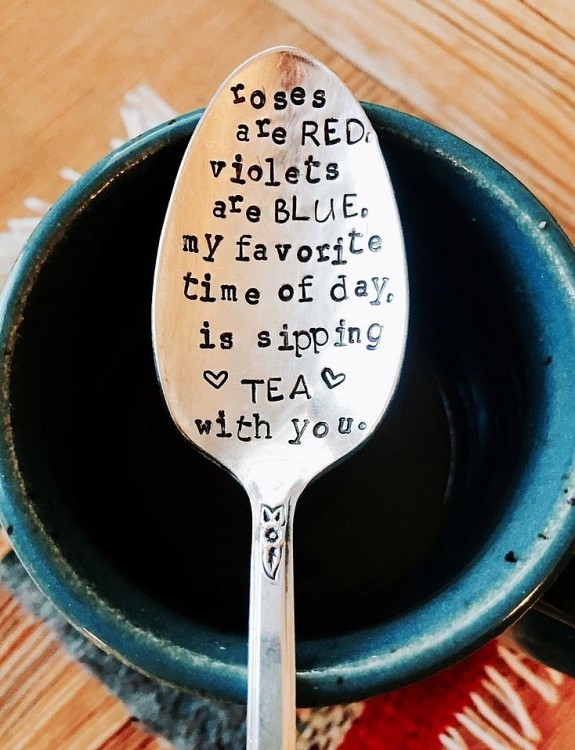 roses
are RED.
violets
are BLUE.
my favorite
time of day,
is sipping
♡ TEA ♡
with you.